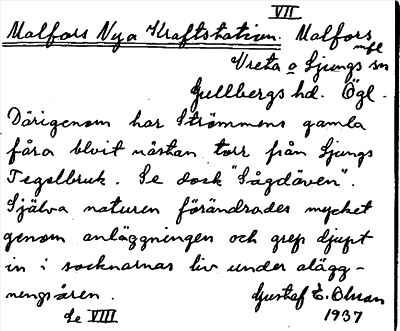 VII
Malfors Nya Kraftstation. Malfors
mfl
Vreta o Ljungs sn
Gullbergs hd. Ögl.
Därigenom har Strömmens gamla
fåra blvit nästan torr från Ljungs
Tegelbruk. Se dock "Sågdäven".
Själva naturen förändrades mycket
genom anläggningen och grep djupt
in i socknarnas liv under alägg-
nengsåren.
Gustaf E. Olsson
Se VIII
1937